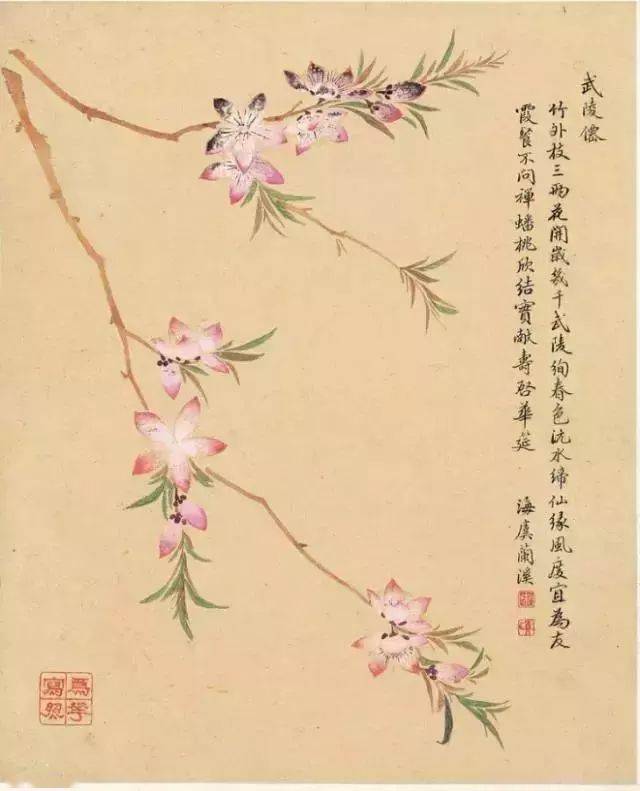 武陵僊
竹外枝三兩花開歲幾千武陵絢春色沅水締仙緣風度宜為友
霞餐不問禪蟠桃欣結實獻壽啓華筵
海虞蘭溪
為華寫照